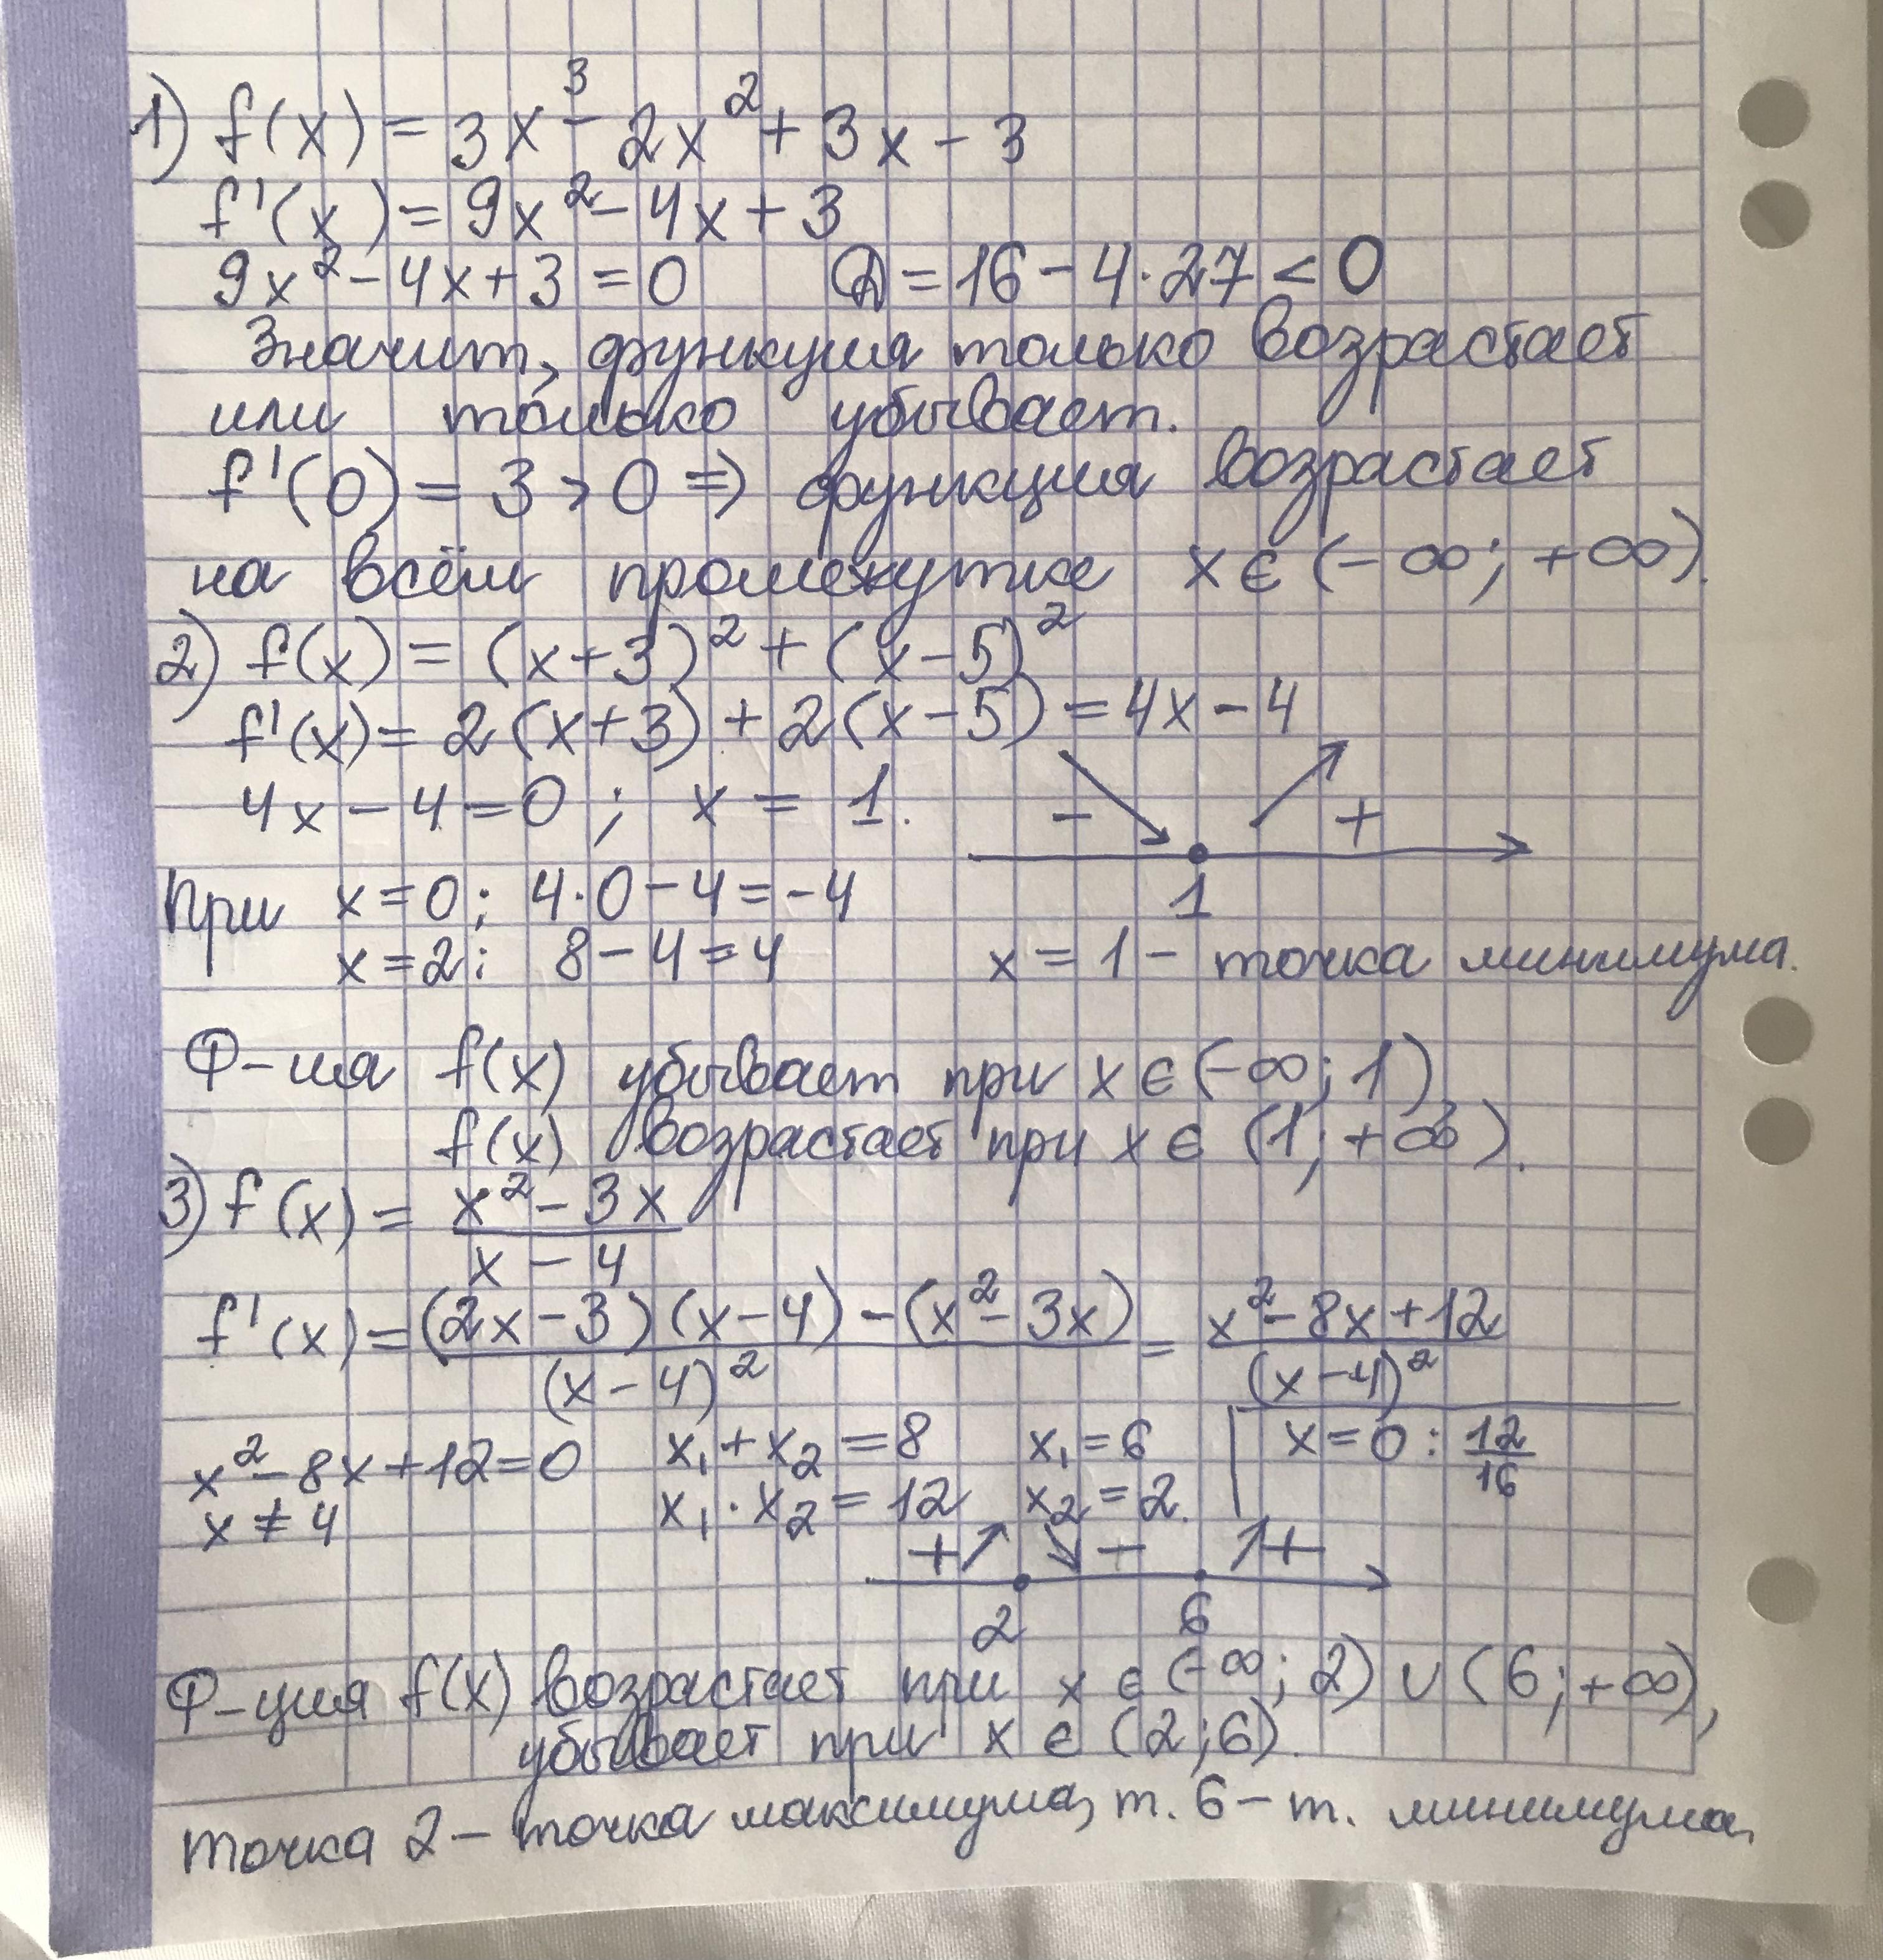 1) f(x) = 3x³ - 2x² + 3x - 3
f'(x) = 9x² - 4x + 3
9x² - 4x + 3 = 0 D = 16 - 4·27 < 0
Значит, функция только возрастает
или только убывает.
f'(0) = 3 > 0 ⇒ функция возрастает
на всём промежутке x ∈ (-∞; +∞).
2) f(x) = (x+3)² + (x-5)²
f'(x) = 2(x+3) + 2(x-5) = 4x - 4
4x - 4 = 0 ; x = 1.
- +
1
При x = 0: 4·0 - 4 = -4
x = 2: 8 - 4 = 4 x = 1 - точка минимума.
Ф-ия f(x) убывает при x ∈ (-∞; 1)
f(x) возрастает при x ∈ (1; +∞).
3) f(x) = (x² - 3x)/(x - 4)
f'(x) = ((2x-3)(x-4) - (x² - 3x))/(x-4)² = (x² - 8x + 12)/(x-4)²
x² - 8x + 12 = 0 x₁ + x₂ = 8 x₁ = 6 x = 0 : 12/16
x ≠ 4 x₁ · x₂ = 12 x₂ = 2.
+ - +
2 6
Ф-ция f(x) возрастает при x ∈ (-∞; 2) ∪ (6; +∞),
убывает при x ∈ (2; 6).
точка 2 - точка максимума, т. 6 - т. минимума.